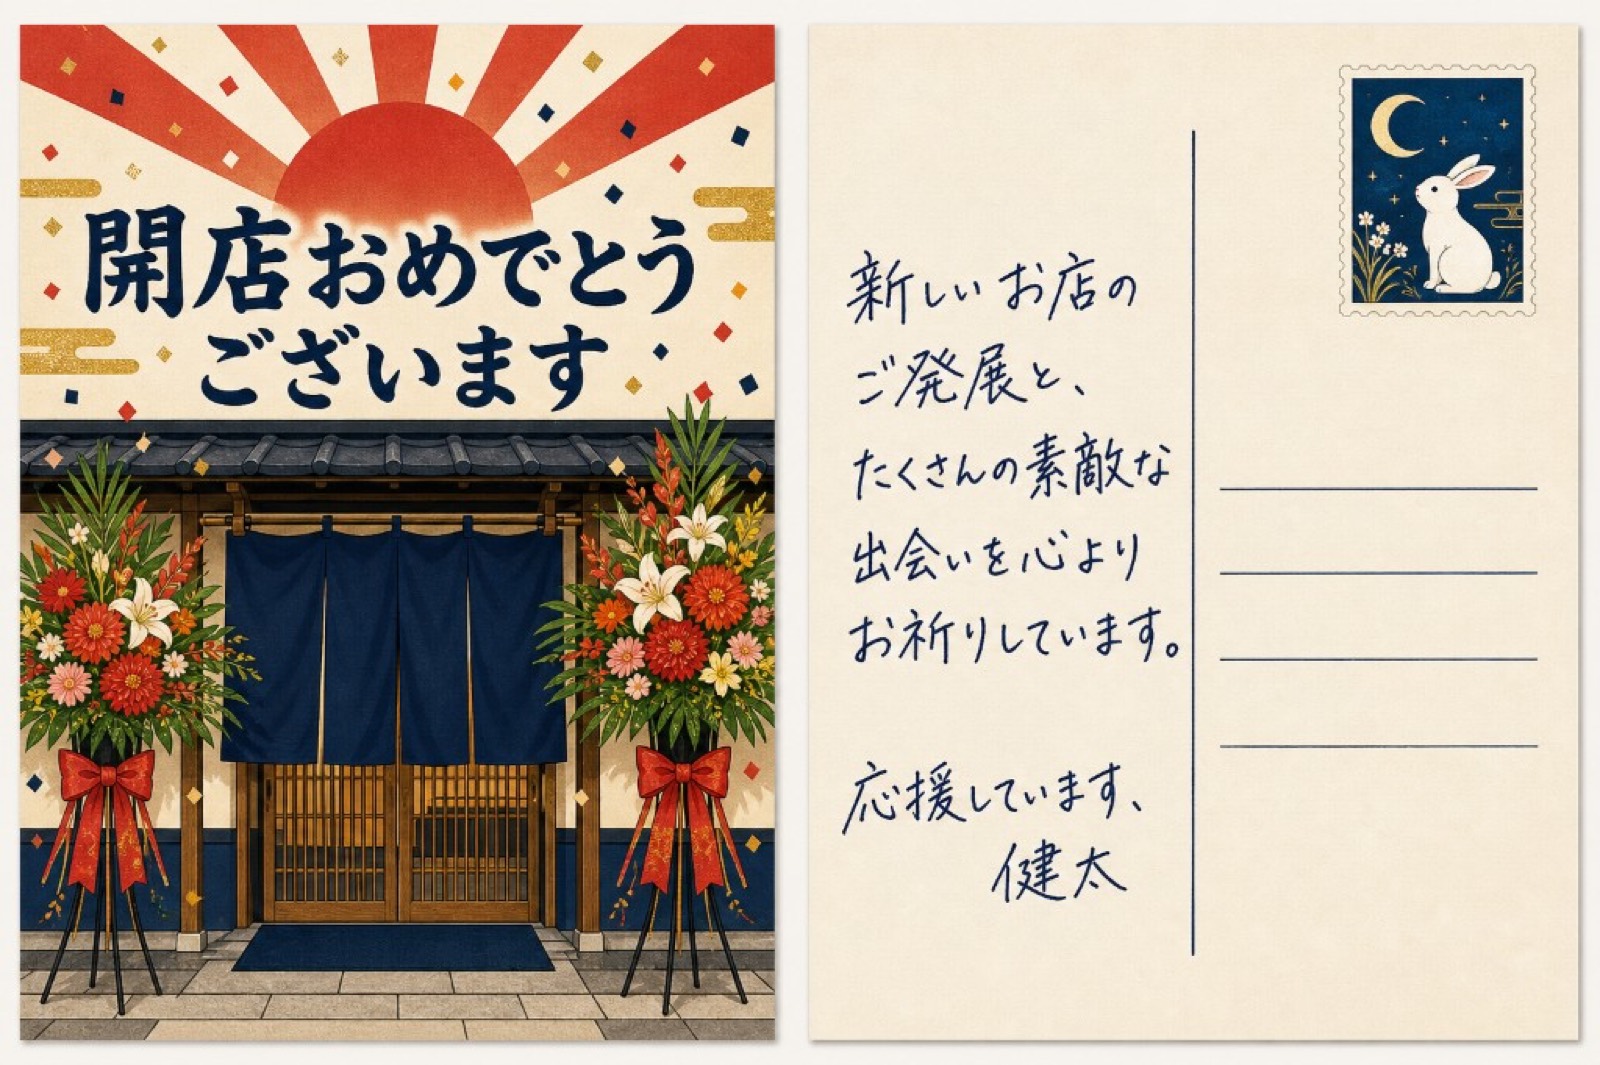 開店おめでとう
ございます
新しいお店の
ご発展と、
たくさんの素敵な
出会いを心より
お祈りしています。
応援しています、
健太